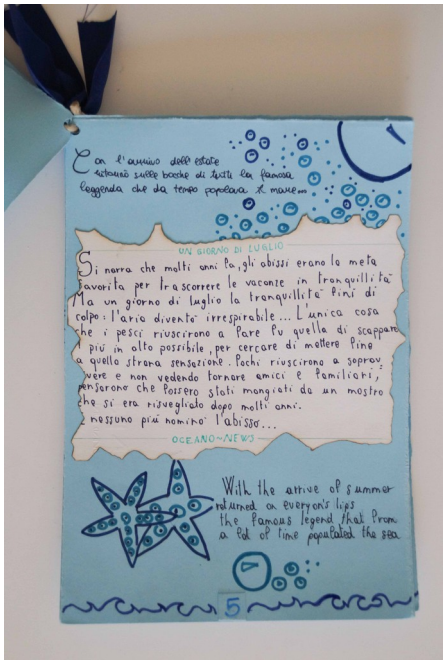 Con l'arrivo dell'estate
ritornò sulle bocche di tutti la famosa
leggenda che da tempo popolava il mare...
UN GIORNO DI LUGLIO
Si narra che molti anni fa, gli abissi erano la meta
favorita per trascorrere le vacanze in tranquillità
Ma un giorno di luglio la tranquillità finì di
colpo: l'aria diventò irrespirabile... L'unica cosa
che i pesci riuscirono a fare fu quella di scappare
più in alto possibile, per cercare di mettere fine
a quella strana sensazione. Pochi riuscirono a soprav
vere e non vedendo tornare amici e familiari,
pensarono che fossero stati mangiati da un mostro
che si era risvegliato dopo molti anni.
nessuno più nominò l'abisso...
OCEANO~NEWS
With the arrive of summer
returned on everyon's lips
the famous legend that from
a lot of time populated the sea
5